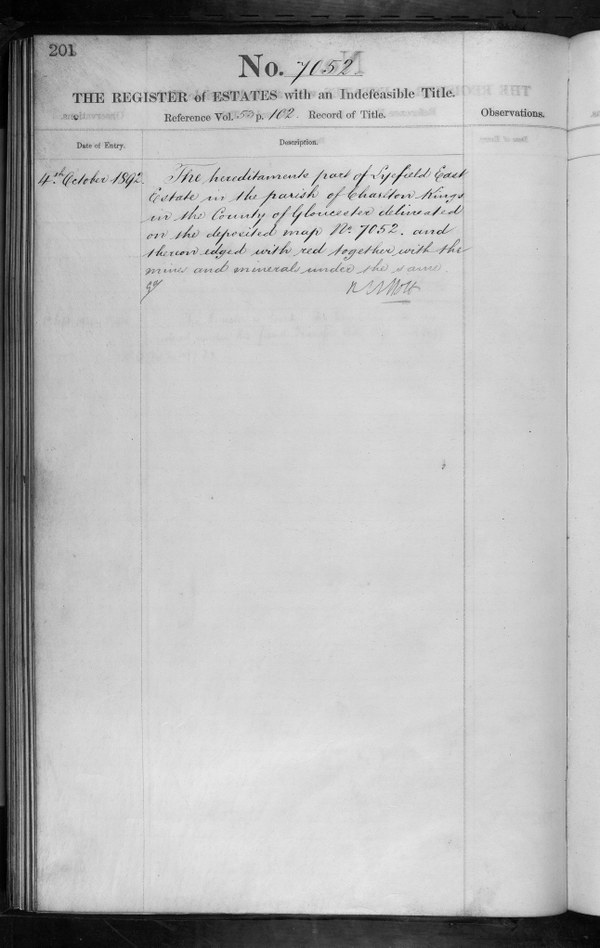 201
No. 7052
THE REGISTER of ESTATES with an Indefeasible Title.
Reference Vol. p. 102 Record of Title.
Observations.
Date of Entry.
Description.
4th October 1892.
The hereditaments part of Lyefield East
Estate in the parish of Charlton Kings
in the County of Gloucester delineated
on the deposited map No. 7052. and
thereon edged with red together with the
mines and minerals under the same.
Holt